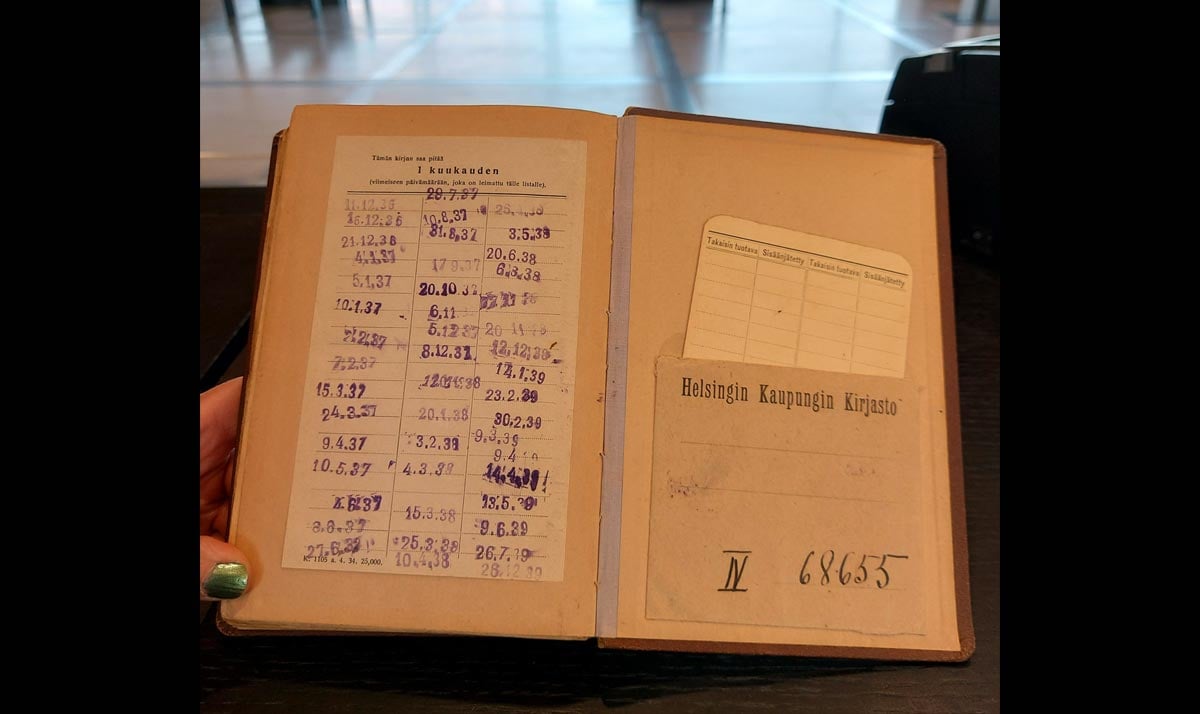 Tämän kirjan saa pitää
1 kuukauden
(viimeiseen päivämäärään, joka on leimattu tälle listalle).
11.12.36
15.12.36
21.12.36
4.1.37
5.1.37
10.1.37
7.2.37
7.2.37
15.3.37
24.3.37
9.4.37
10.5.37
4.6.37
8.6.37
27.6.37
K. 1105 a. 4. 34. 25,000.
29.7.37
10.8.37
31.8.37
17 9.37
20.10.37
6.11
5.12 37
8.12.37.
20.1.38
3.2.38
4.3.38
15.3.38
25.3.38
10.4.38
3.5.38
20.6.38
6.8.38
20 11
12.12.38
23.2.39
30.2.39
9.3.39
9.4
14.4.39
13.5.39
9.6.39
26.7.39
28.12 39
Takaisin tuotava Sisäänjätetty Takaisin tuotava Sisäänjätetty
Helsingin Kaupungin Kirjasto
IV 68655